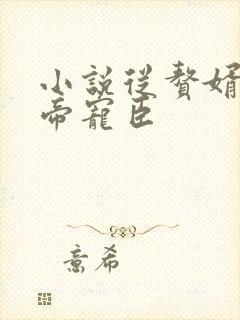 小說從贅婿
帝寵臣
意希